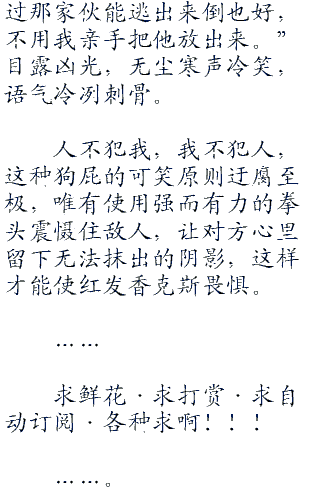 过那家伙能逃出来倒也好，
不用我亲手把他放出来。”
目露凶光，无尘寒声冷笑，
语气冷冽刺骨。
人不犯我，我不犯人，
这种狗屁的可笑原则迂腐至
极，唯有使用强而有力的拳
头震慑住敌人，让对方心里
留下无法抹出的阴影，这样
才能使红发香克斯畏惧。
……
求鲜花·求打赏·求自
动订阅·各种求啊！！！
……。